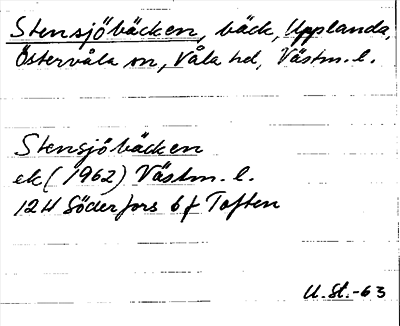 Stensjöbäcken, bäck, Upplanda,
Östervåla sn, Våla hd, Västm. l.
Stensjöbäcken
ek (1962) Västm. l.
12H Söderfors 6f Toften
U. St.-63